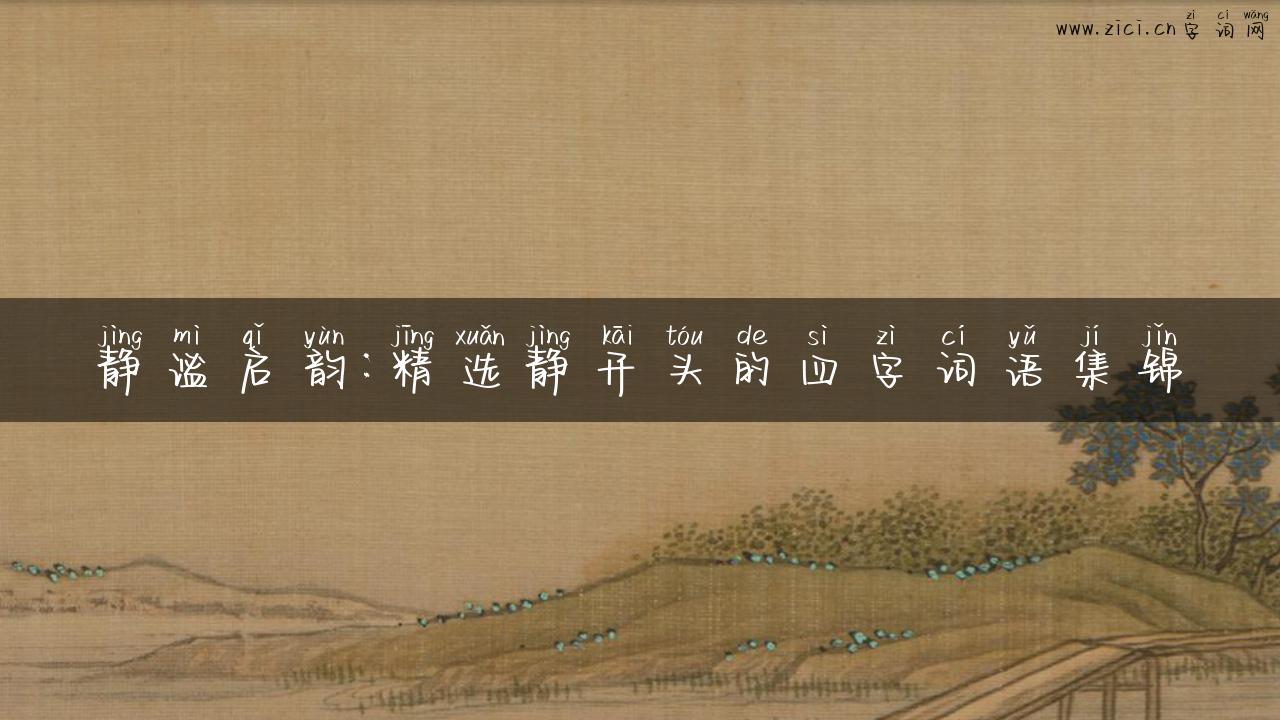 zì cí wǎng
www.zici.cn字词网
jìng mì qǐ yùn jīng xuǎn jìng kāi tóu de sì zì cí yǔ jí jǐn
静谧启韵:精选静开头的四字词语集锦